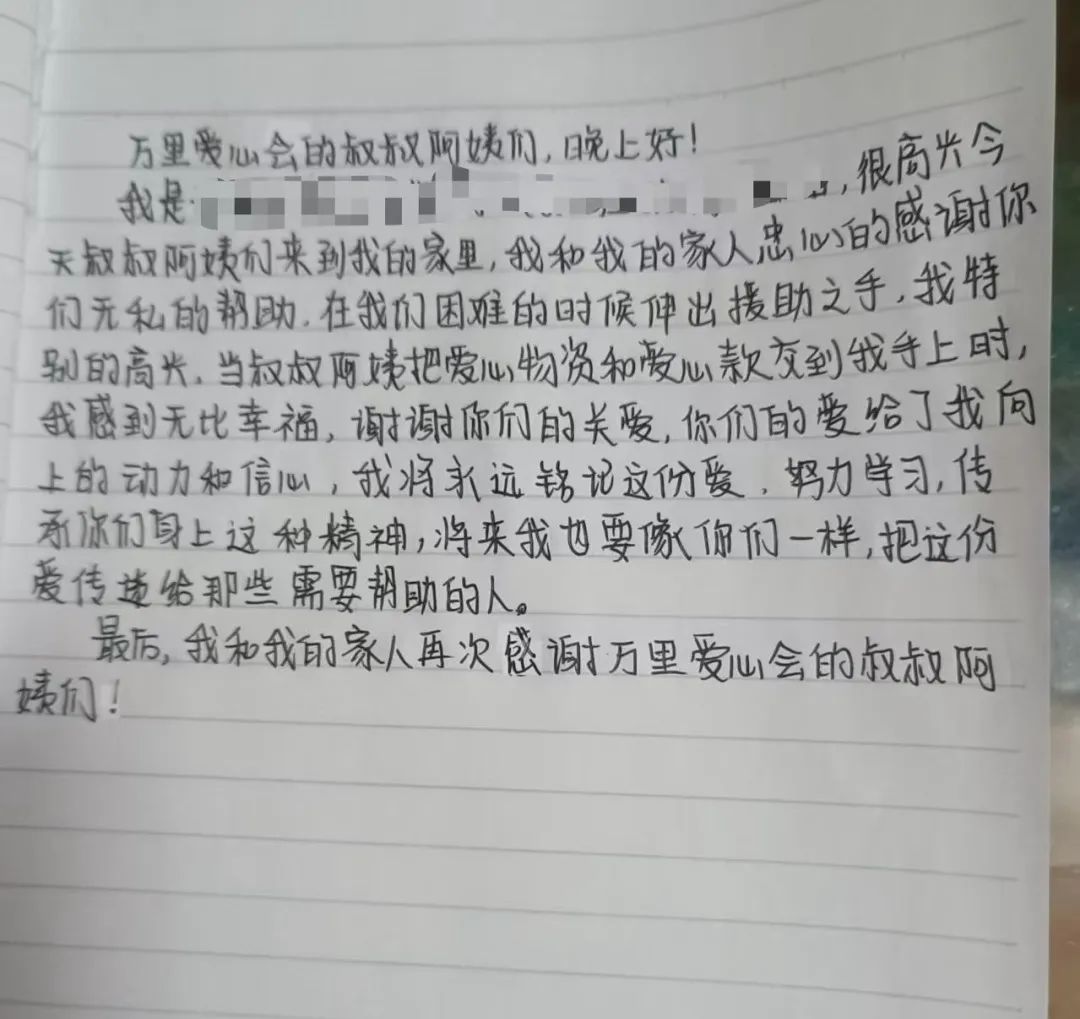 万里爱心会的叔叔阿姨们，晚上好！
我是，很高兴今
天叔叔阿姨们来到我的家里，我和我的家人忠心的感谢你
们无私的帮助．在我们困难的时候伸出援助之手．我特
别的高兴．当叔叔阿姨把爱心物资和爱心款交到我手上时，
我感到无比幸福，谢谢你们的关爱，你们的爱给了我向
上的动力和信心，我将永远铭记这份爱．努力学习，传
承你们身上这种精神，将来我也要像你们一样，把这份
爱传递给那些需要帮助的人。
最后，我和我的家人再次感谢万里爱心会的叔叔阿
姨们！